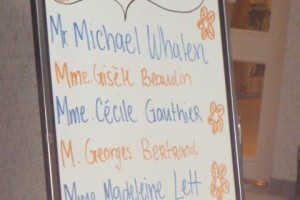 Mr. Michael Whalen
Mme. Gisèle Beaudin
Mme. Cécile Gauthier
M. Georges Bertrand
Mme Madeleine Lett